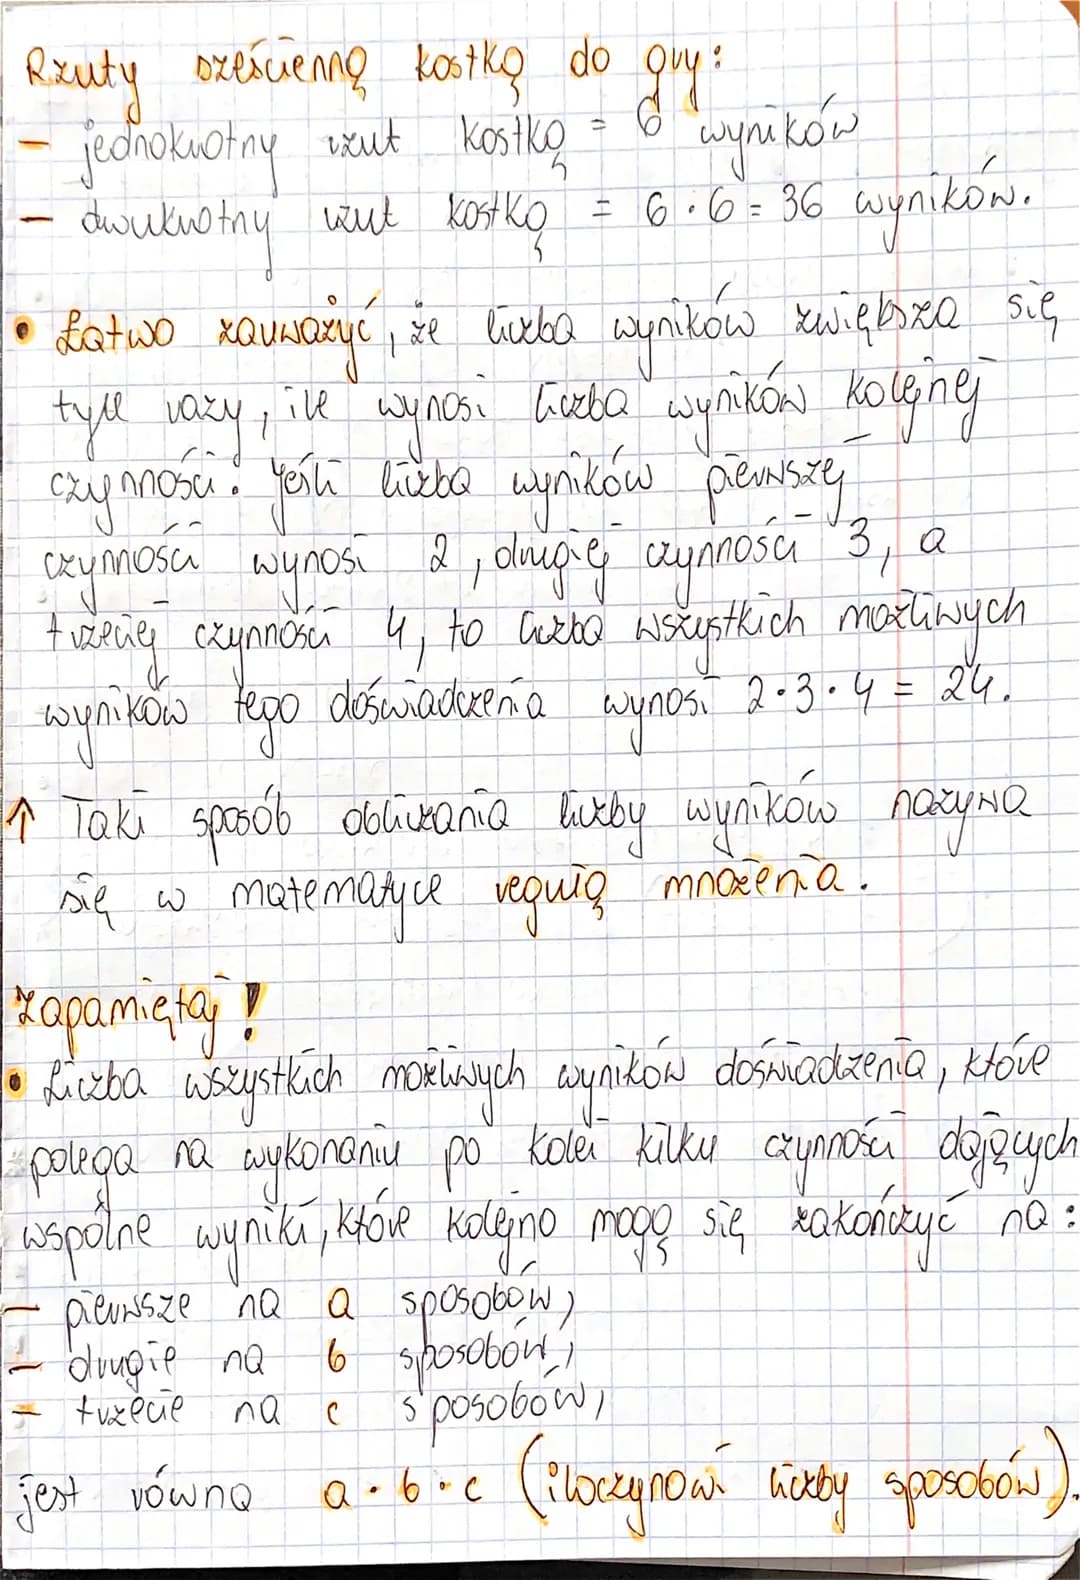 Rzuty sześcienną kostką do gry:
- jednokrotny rzut kostką = 6 wyników
- dwukrotny rzut kostką = 6 · 6 = 36 wyników.
• Łatwo zauważyć, że liczba wyników zwiększa się
tyle razy, ile wynosi liczba wyników kolejnej
czynności. Jeśli liczba wyników pierwszej
czynności wynosi 2, drugiej czynności 3, a
trzeciej czynności 4, to liczba wszystkich możliwych
wyników tego doświadczenia wynosi 2 · 3 · 4 = 24.
↑ Taki sposób obliczania liczby wyników nazywa
się w matematyce regułą mnożenia.
Zapamiętaj!
• Liczba wszystkich możliwych wyników doświadczenia, które
polega na wykonaniu po kolei kilku czynności dających
wspólne wyniki, które kolejno mogą się zakończyć na:
- pierwsze na a sposobów,
- drugie na b sposobów,
- trzecie na c sposobów,
jest równa a · b · c (iloczynowi liczby sposobów).